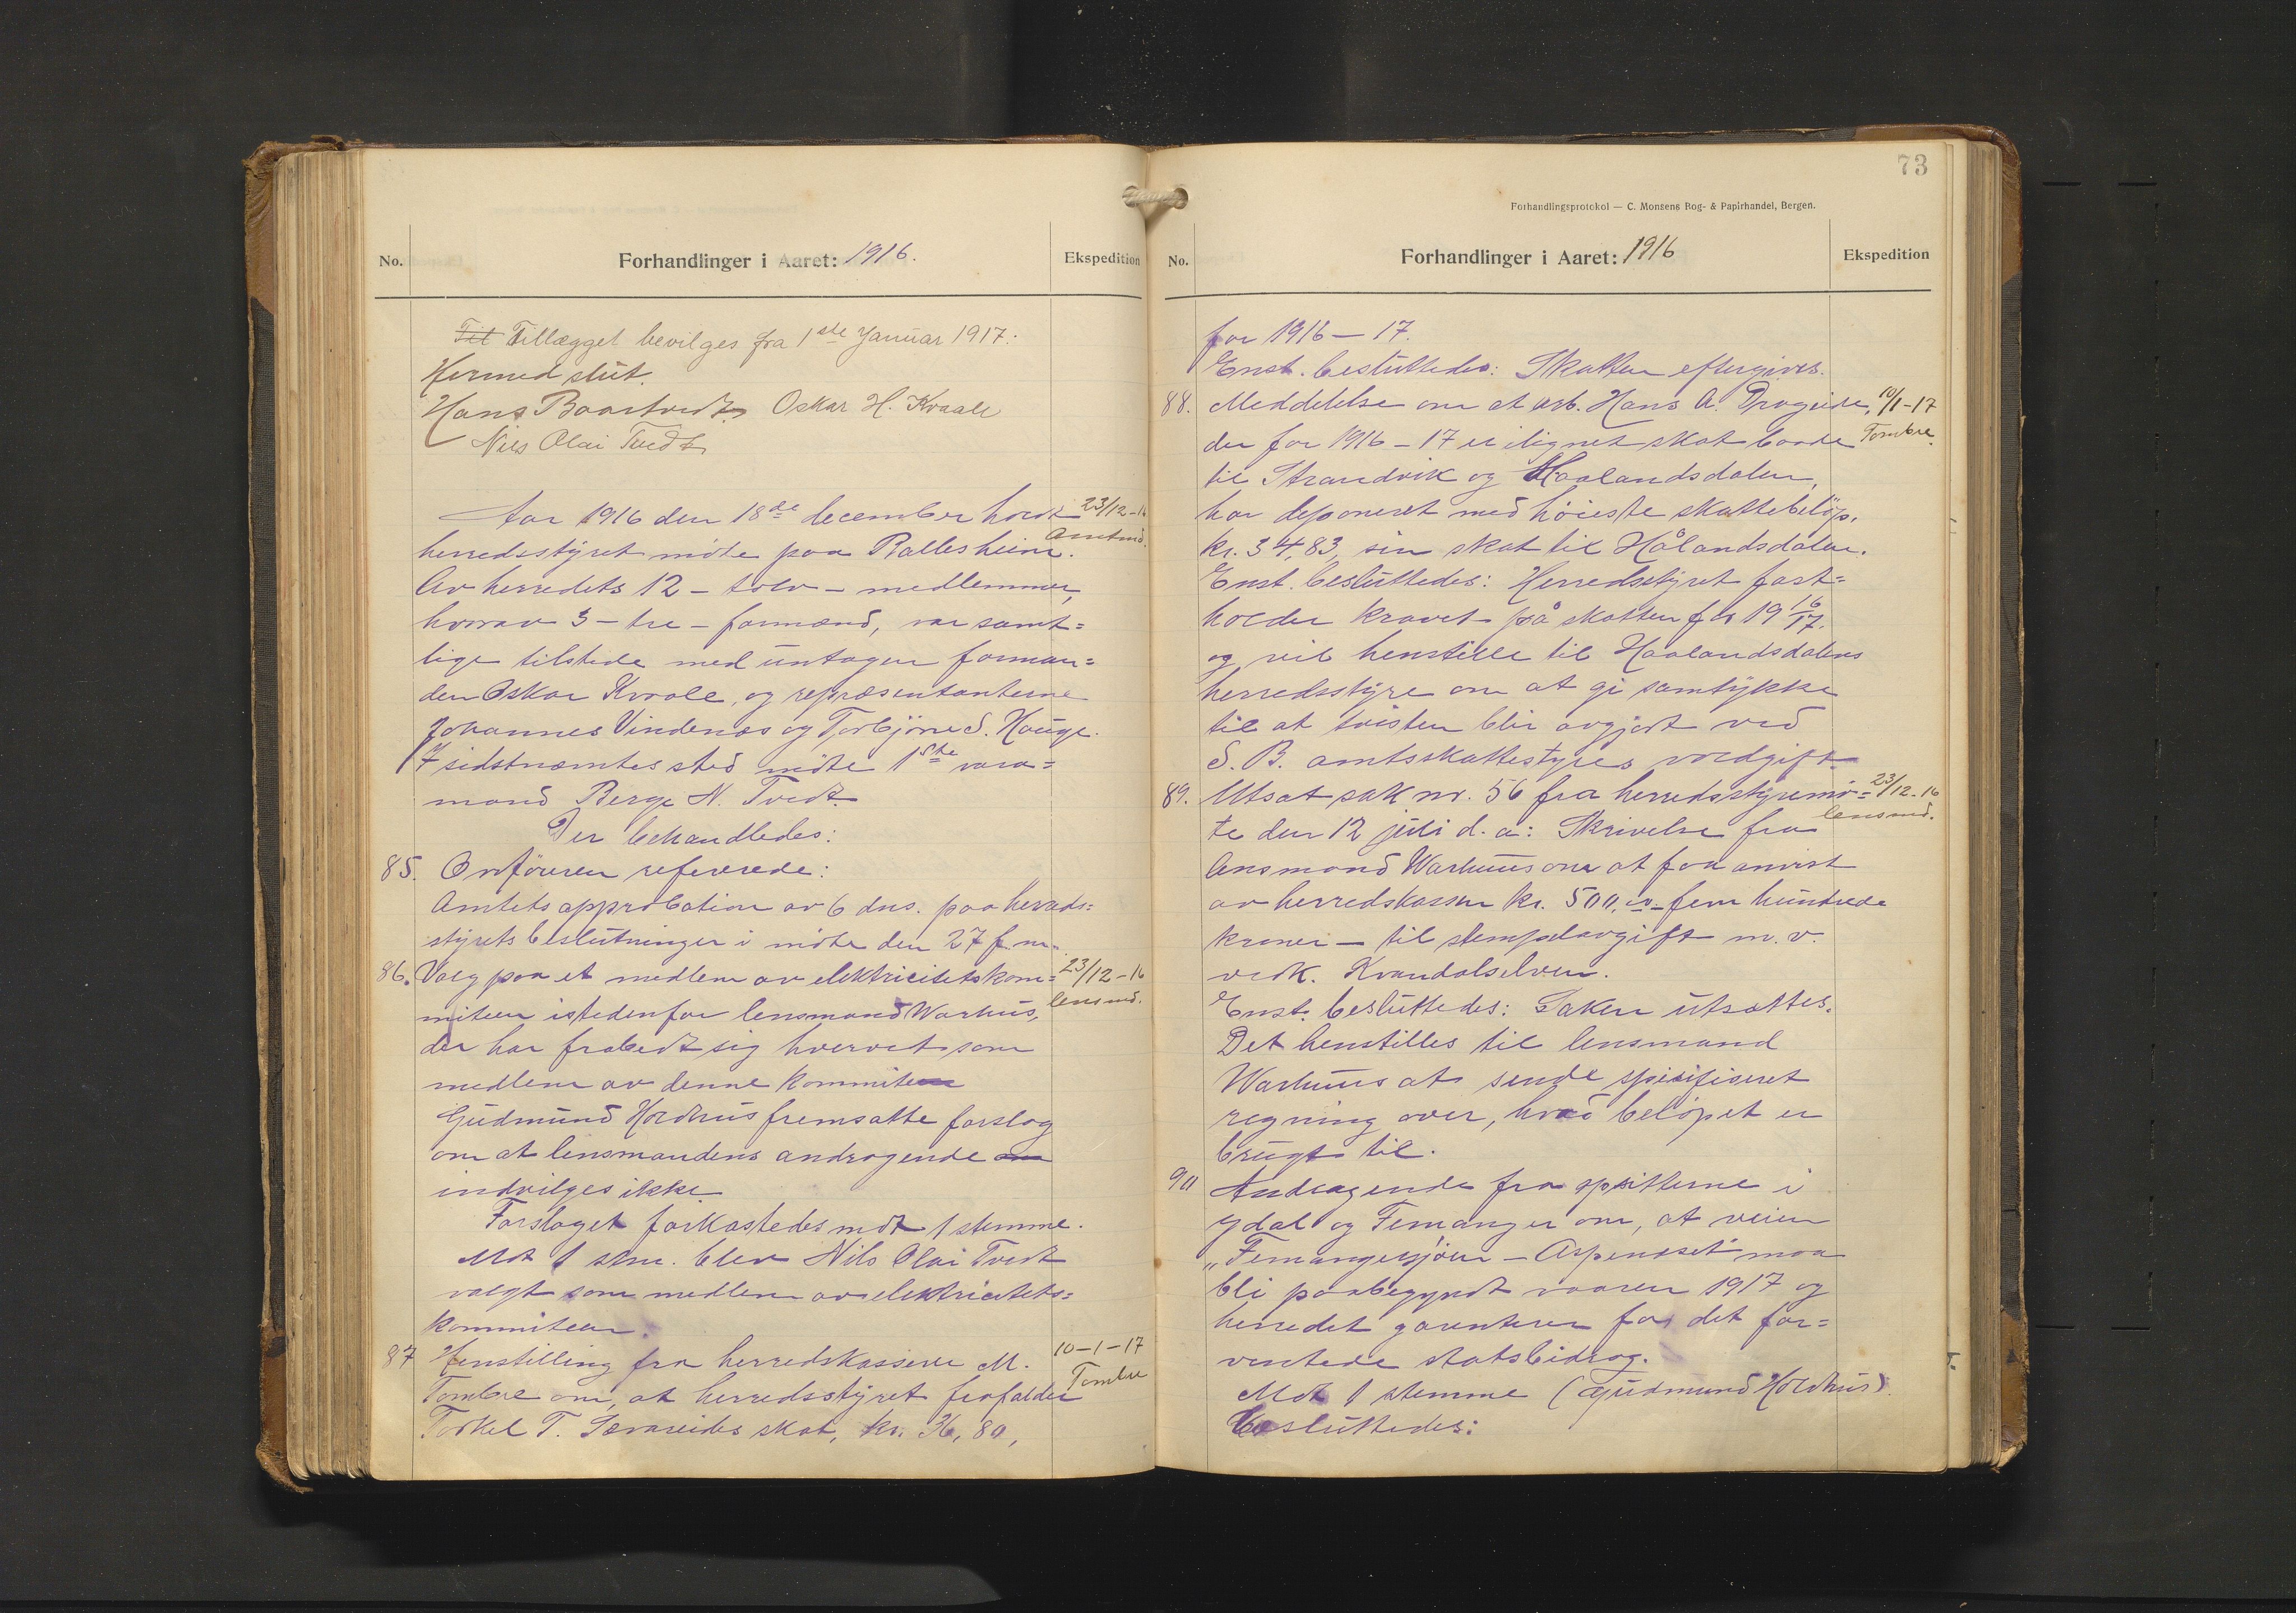 No.
Forhandlinger i Aaret: 1916.
Ekspedition
Til Tillægget bevilges fra 1ste Januar 1917.
Hermed slut.
Hans Baartvedt Oskar H. Kvaale
Nils Olai Tvedt
Aar 1916 den 18de december holdt 23/12-16
herredsstyret möte paa Ballesheim. Amtmd.
Av herredets 12 - tolv - medlemmer,
hvorav 3 - tre - formænd, var samt=
lige tilstede med untagen forman=
den Oskar Kvale, og repræsentanterne
Johannes Vindenæs og Torbjörn S. Hauge.
I sidstnæmtes sted mötte 1ste vara=
mand Berge N. Tvedt.
Der behandledes:
85. Ordföreren refererede:
Amtets approbation av 6 dns. paa herreds=
styrets beslutninger i möte den 27 f. m.
86. Valg paa et medlem av elektricitetskom= 23/12-16
miteen istedenfor lensmand Warhus, lensmd.
der har frabedt sig hvervet som
medlem av denne kommiteen
Gudmund Holdhus fremsatte forslag
om at lensmandens andragende om
indvilges ikke.
Forslaget forkastedes mot 1 stemme.
Mot 1 stm. blev Nils Olai Tvedt
valgt som medlem av elektricitets=
kommiteen.
87 Henstilling fra herredskasserer M. 10-1-17
Tombre om, at herredsstyret frafalder Tombre
Torkel T. Sævareides skat, kr. 36,80,
73
Forhandlingsprotokol — C. Monsens Bog- & Papirhandel, Bergen.
No.
Forhandlinger i Aaret: 1916
Ekspedition
for 1916-17.
Enst. besluttedes: Skatten eftergives.
88. Meddelelse om at arb. Hans A. Drageide, 10/1-17
der for 1916-17 er ilignet skat baade Tombre.
til Strandvik og Haalandsdalen,
har deponeret med höieste skattebelöp,
kr. 34,83, sin skat til Hålandsdalen.
Enst. besluttedes: Herredsstyret fast=
holder kravet på skatten for 19 16/17.
og vil henstille til Haalandsdalens
herredsstyre om at gi samtykke
til at tvisten blir avgjort ved
S. B. amtsskattestyres voldgift.
89. Utsat sak nr. 56 fra herredsstyremö= 23/12-16
te den 12 juli d. a: Skrivelse fra lensmd.
lensmand Warhuus om at faa anvist
av herredskassen kr. 500,00 - fem hundrede
kroner - til stempelavgift m. v.
vedk. Kvandalselven.
Enst. besluttedes: Saken utsættes.
Det henstilles til lensmand
Warhuus at sende spesifiseret
regning over, hvad belöpet er
brugt til.
90 Andragende fra opsitterne i
Ydal og Femanger om, at veien
"Femangersjöen - Aspenæset" maa
bli paabegyndt vaaren 1917 og
herredet garenterer for det for=
ventede statsbidrag.
Mot 1 stemme (Gudmund Holdhus).
besluttedes: